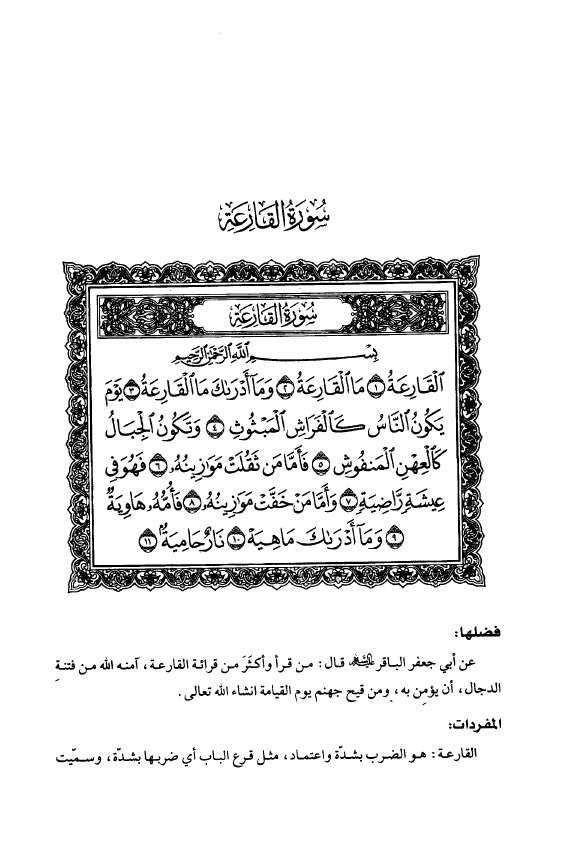 سُورَةُ القَارِعَةِ
سُورَةُ القَارِعَةِ
بِسْمِ ٱللَّهِ ٱلرَّحْمَٰنِ ٱلرَّحِيمِ
ٱلْقَارِعَةُ ١ مَا ٱلْقَارِعَةُ ٢ وَمَآ أَدْرَىٰكَ مَا ٱلْقَارِعَةُ ٣ يَوْمَ
يَكُونُ ٱلنَّاسُ كَٱلْفَرَاشِ ٱلْمَبْثُوثِ ٤ وَتَكُونُ ٱلْجِبَالُ
كَٱلْعِهْنِ ٱلْمَنفُوشِ ٥ فَأَمَّا مَن ثَقُلَتْ مَوَٰزِينُهُۥ ٦ فَهُوَ فِى
عِيشَةٍ رَّاضِيَةٍ ٧ وَأَمَّا مَنْ خَفَّتْ مَوَٰزِينُهُۥ ٨ فَأُمُّهُۥ هَاوِيَةٌ
٩ وَمَآ أَدْرَىٰكَ مَا هِيَهْ ١٠ نَارٌ حَامِيَةٌۢ ١١
فضلها:
عن أبي جعفر الباقر عليه السلام قال: من قرأ وأكثَرَ من قرائة القارعة، آمنه الله من فتنةِ
الدجال، أن يؤمن به، ومن قيح جهنم يوم القيامة انشاء الله تعالى.
المفردات:
القارعة: هو الضرب بشدّة واعتماد، مثل قرع الباب أي ضربها بشدّة، وسمّيت